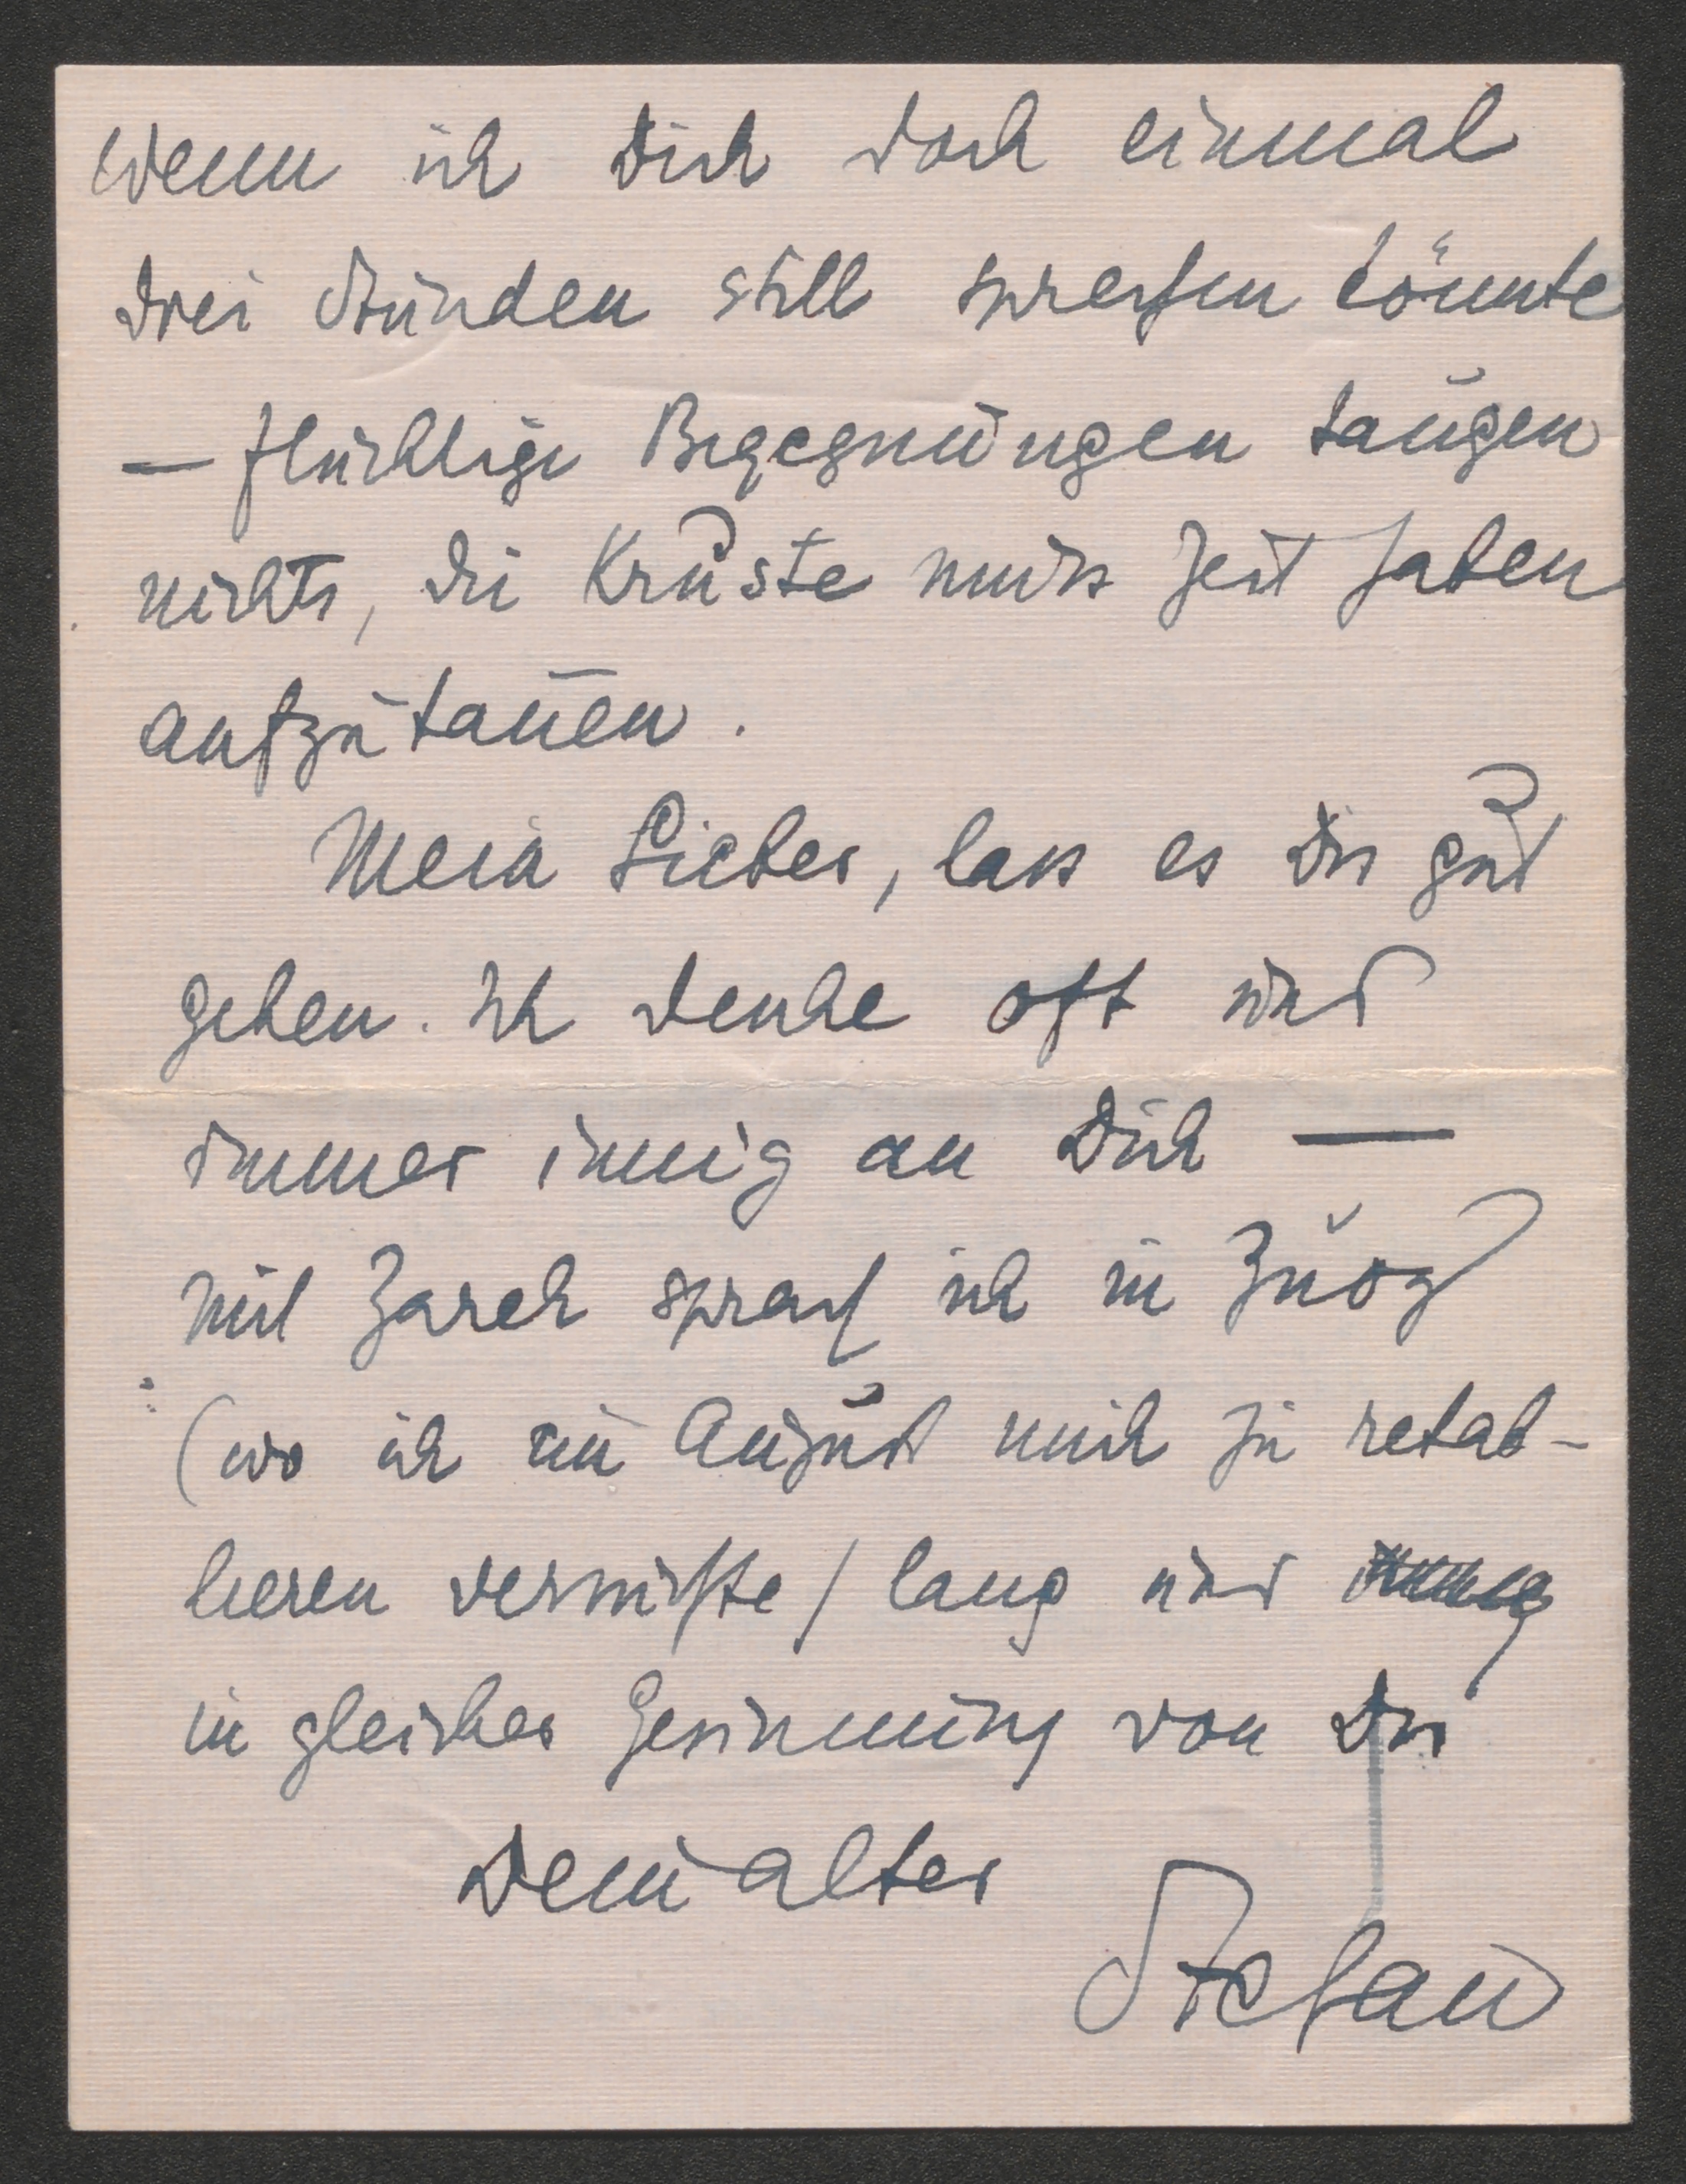 wenn ich Dich doch einmal
drei Stunden still sprechen könnte
— flüchtige Begegnungen taugen
nichts, die Kruste muss Zeit haben
aufzutauen.
Mein Lieber, lass es Dir gut
gehen. Ich denke oft und
immer innig an Dich —
mit Zarek sprach ich in Zuoz
(wo ich im August mich zu retab-
lieren versuchte) lang und
in gleicher Gesinnung von Dir
Dein alter
Stefan